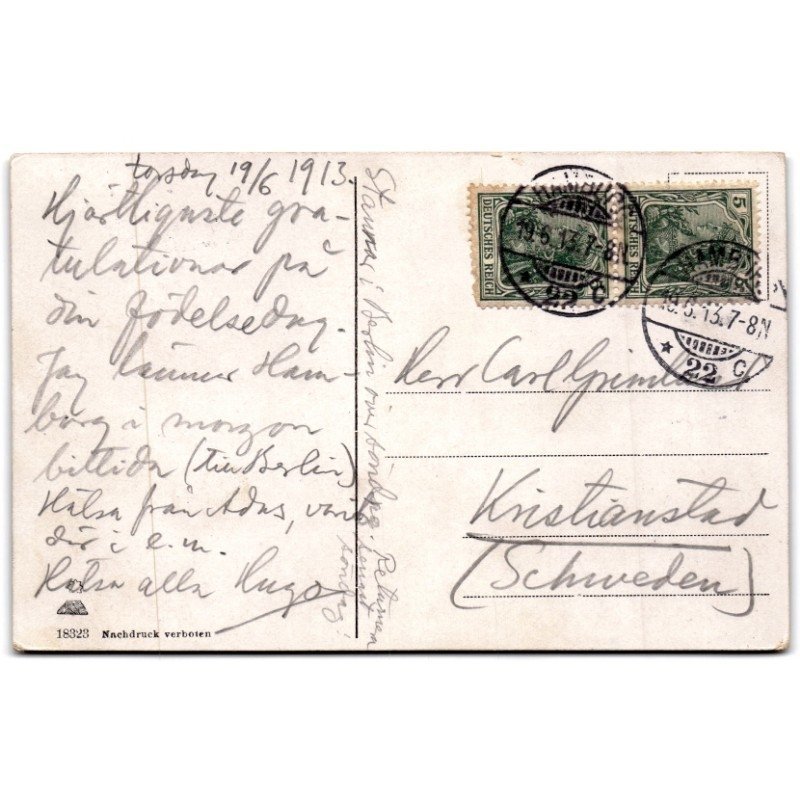 torsdag 19/6 1913.
Hjärtligaste gra-
tulationer på
din födelsedag.
Jag lämnar Ham-
burg i morgon
bittida (till Berlin)
Hälsa från Adas, varit
där i e.m.
Hälsa alla Hugo
Stannar i Berlin över söndag. Returnen
söndag!
18323 Nachdruck verboten
DEUTSCHES REICH
DEUTSCHES REICH
5
HAMBURG
19.6.13.7-8N
* 22 C.
HAMBURG
19.6.13.7-8N
* 22 C.
Herr Carl
Kristianstad
(Schweden)